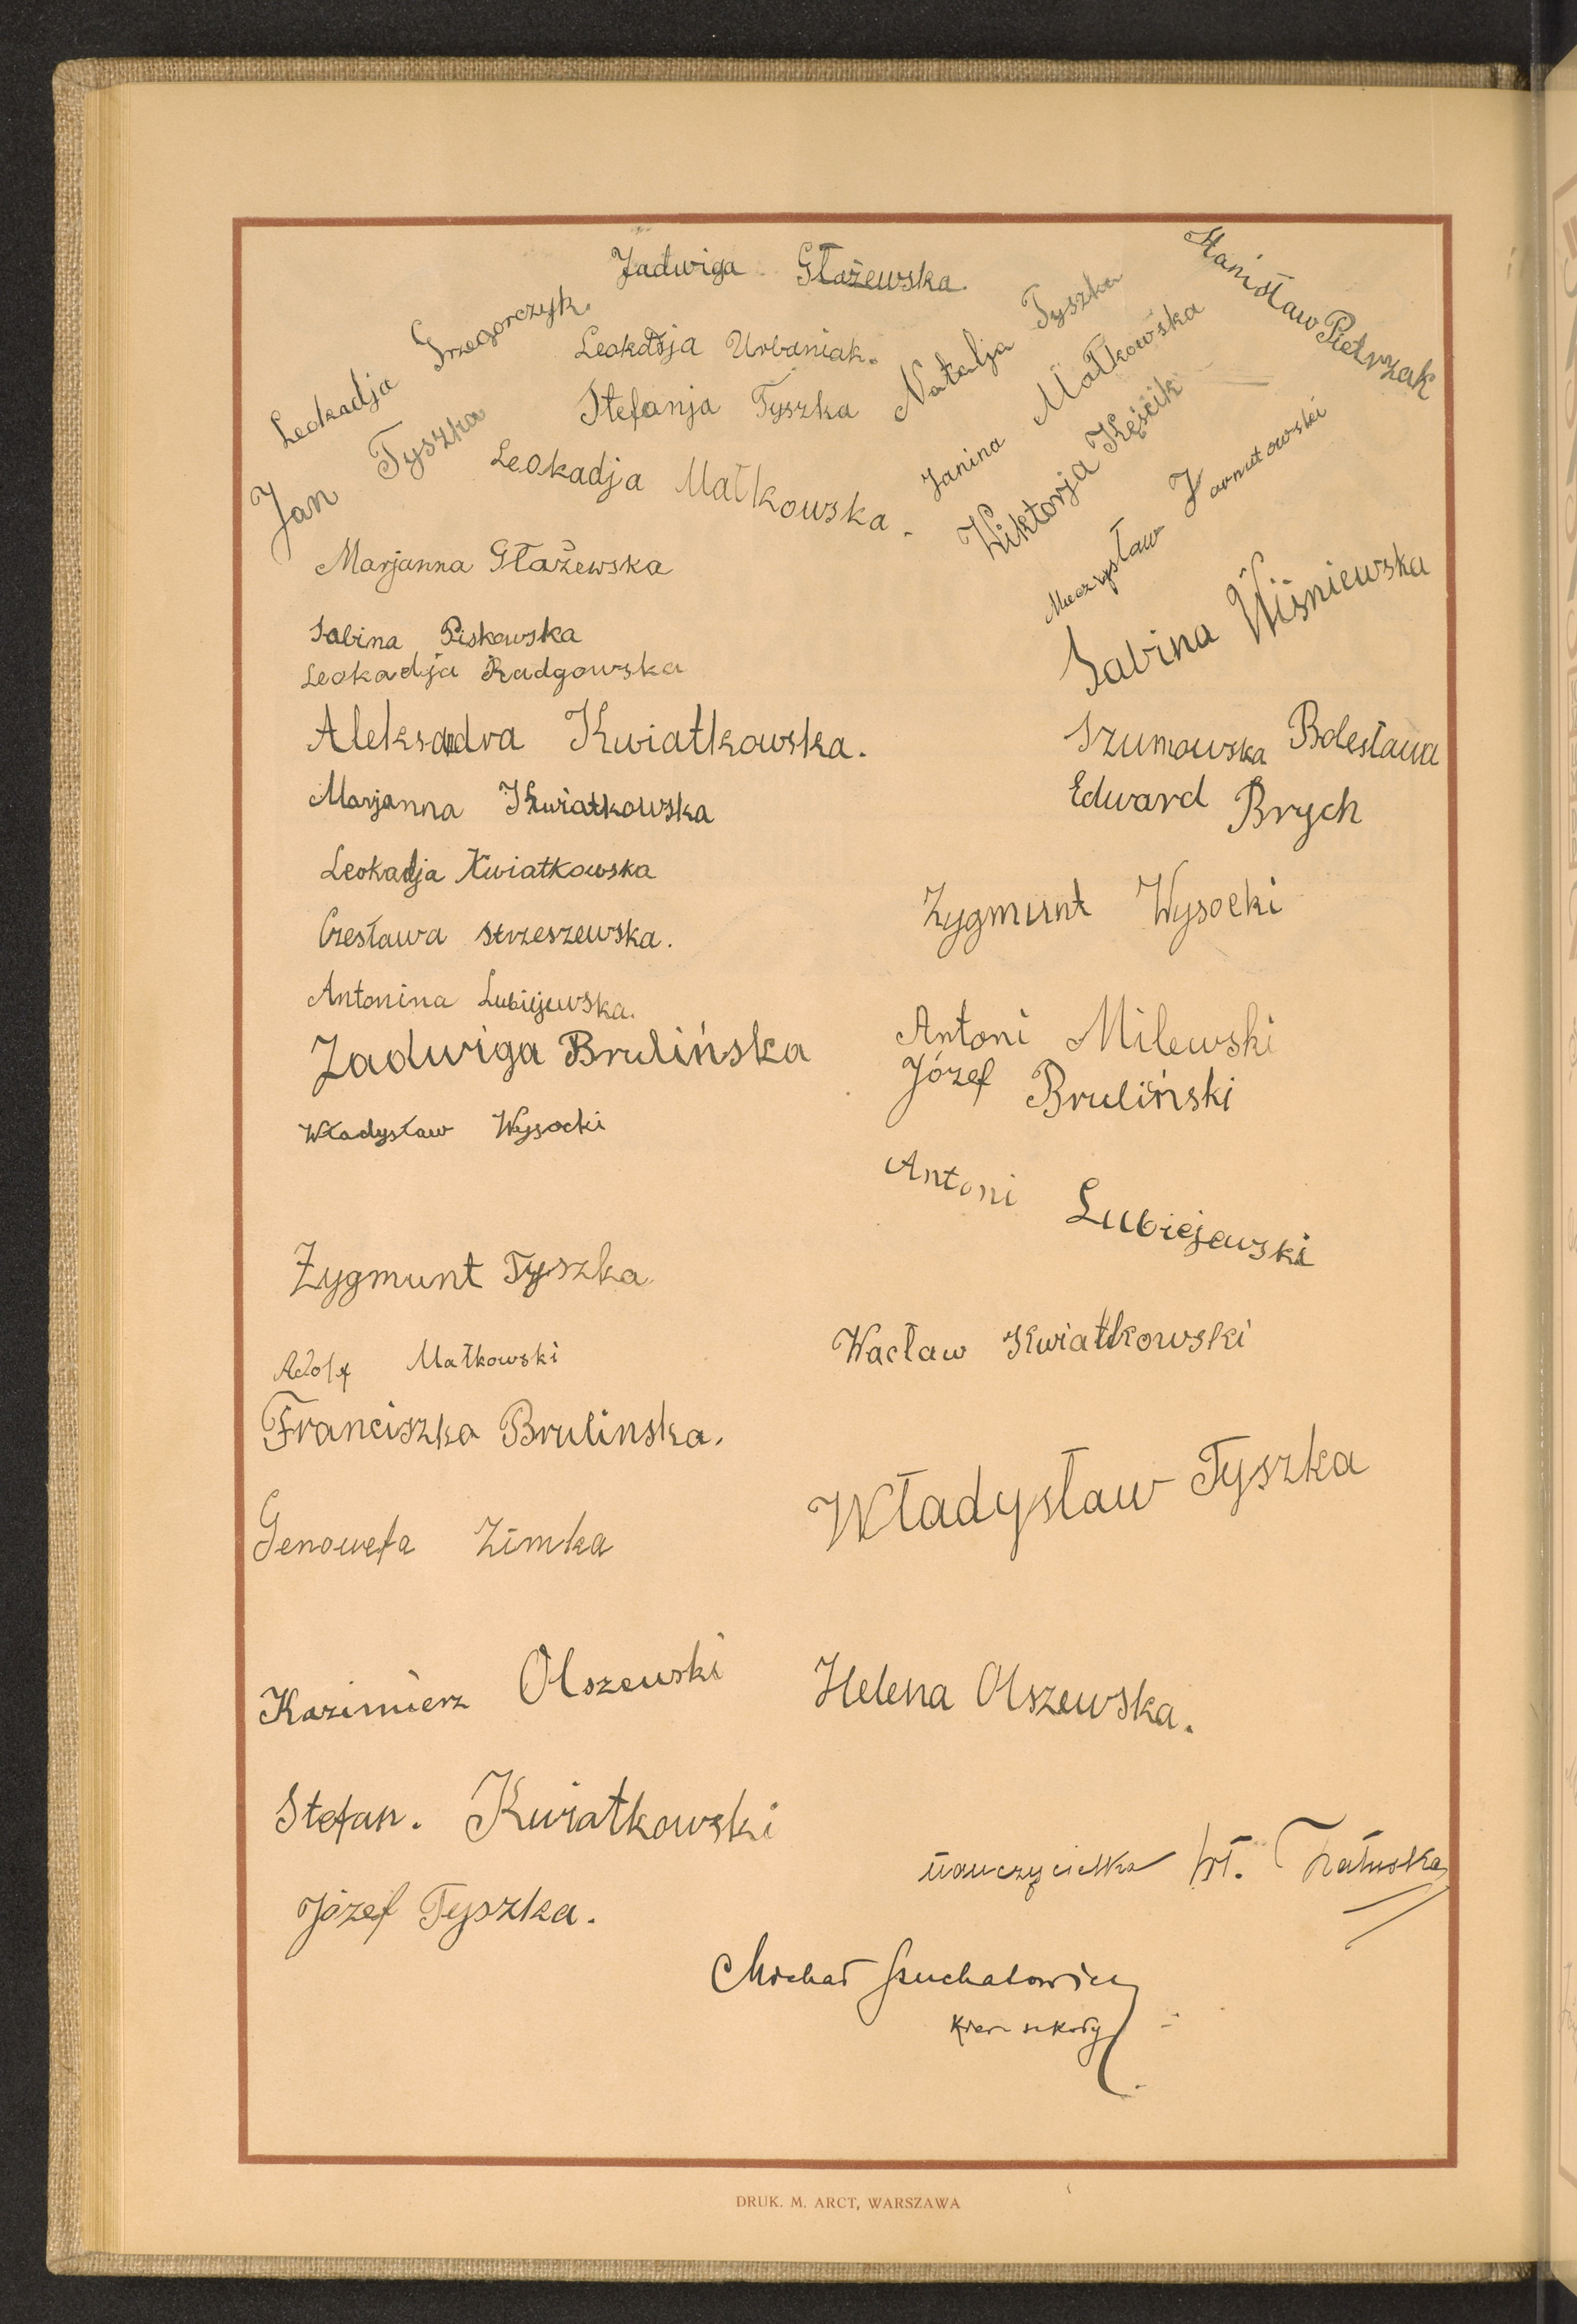 Jadwiga Głażewska.
Stanisław Pietrzak
Leokadja Grzegorczyk.
Leokadja Urbaniak.
Natalja Tyszka
Jan Tyszka
Stefanja Tyszka
Janina Małkowska
Leokadja Małkowska.
Wiktorja Kęścik
Mieczysław Jarnutowski
Marjanna Głażewska
Sabina Wiśniewska
Sabina Piskowska
Leokadja Radgowska
Aleksandra Kwiatkowska.
Szumowska Bolesława
Marjanna Kwiatkowska
Edward Brych
Leokadja Kwiatkowska
Zygmunt Wysocki
Czesława Strzeszewska.
Antonina Lubiejewska.
Antoni Milewski
Jadwiga Brulińska
Józef Bruliński
Władysław Wysocki
Antoni Lubiejewski
Zygmunt Tyszka
Wacław Kwiatkowski
Adolf Małkowski
Franciszka Brulinska.
Władysław Tyszka
Genowefa Zimka
Kazimierz Olszewski
Helena Olszewska.
Stefan. Kwiatkowski
nauczycielka Wł.
Józef Tyszka.
Michał
Kier szkoły
DRUK. M. ARCT, WARSZAWA